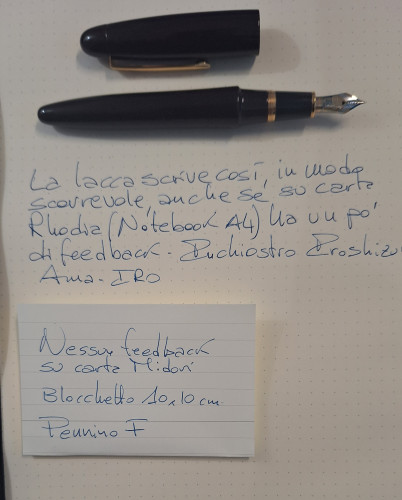 La lacca scrive così, in modo
scorrevole, anche se su carta
Rhodia (Notebook A4) ha un pò
di feedback. Inchiostro Iroshizu
Ama-IRO
Nessun feedback
su carta Midori
Blocchetto 10x10 cm
Pennino F